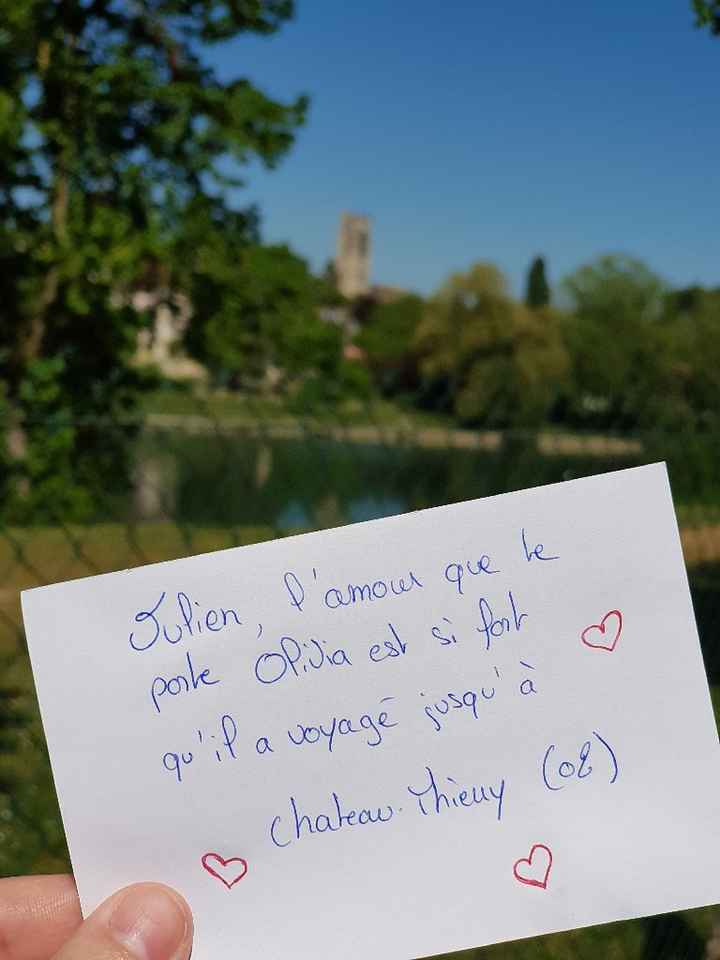 Julien, l'amour que te
porte Olivia est si fort
qu'il a voyagé jusqu'à
Chateau-Thierry (02)